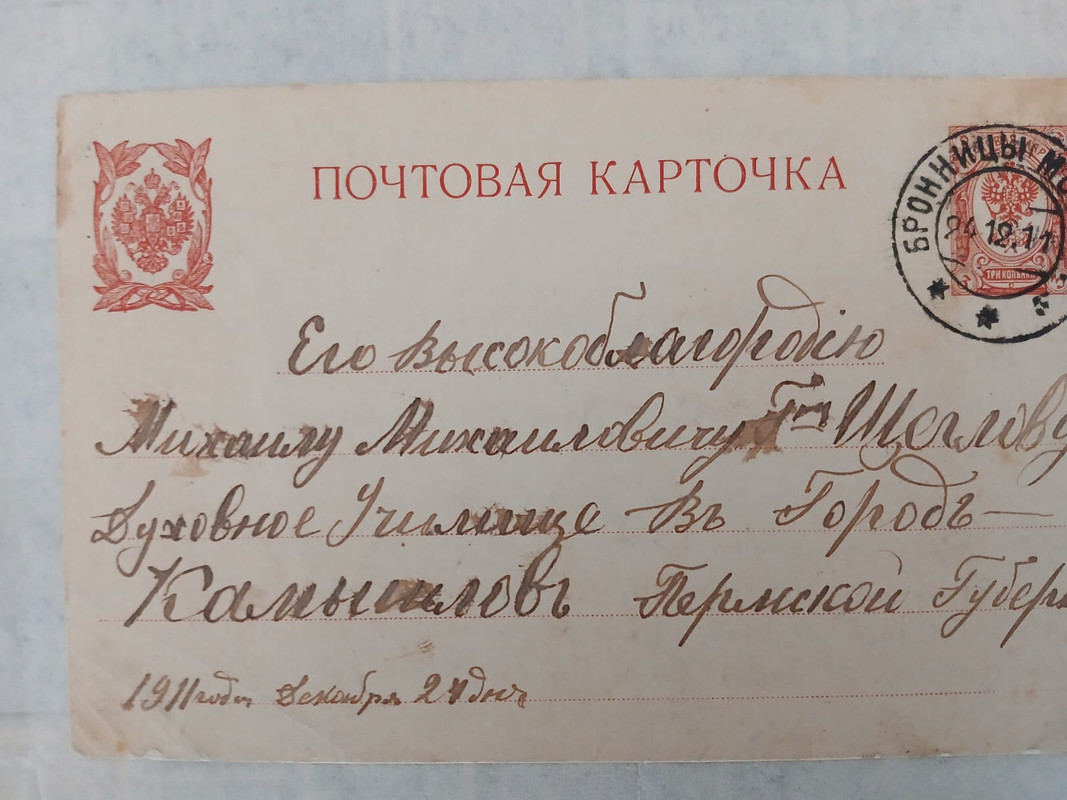 ПОЧТОВАЯ КАРТОЧКА
БРОННИЦЫ МО
24.12.11
ТРИ КОПѢЙКИ
Его Высокоблагородію
Михаилу Михаиловичу Гну Щеглову
Духовное Училище Въ Городъ—
Камышловъ Пермской Губерн
1911 года Декабря 24 дня